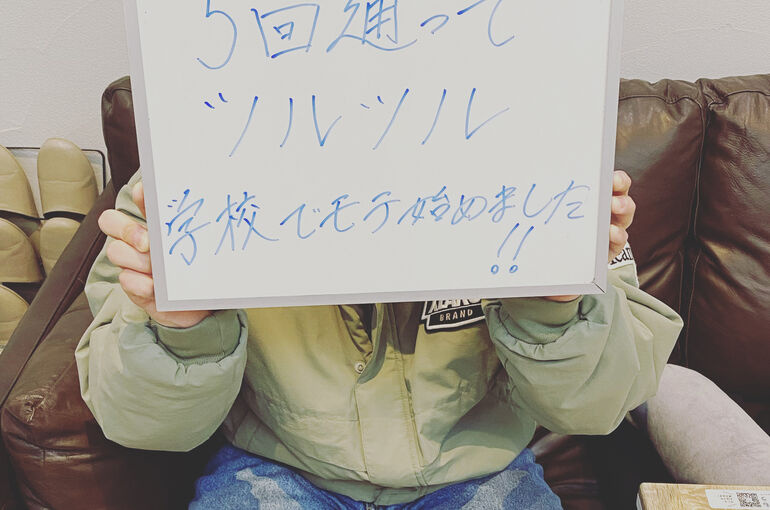 5回通って
ツルツル
学校でモテ始めました
!!
BRAND